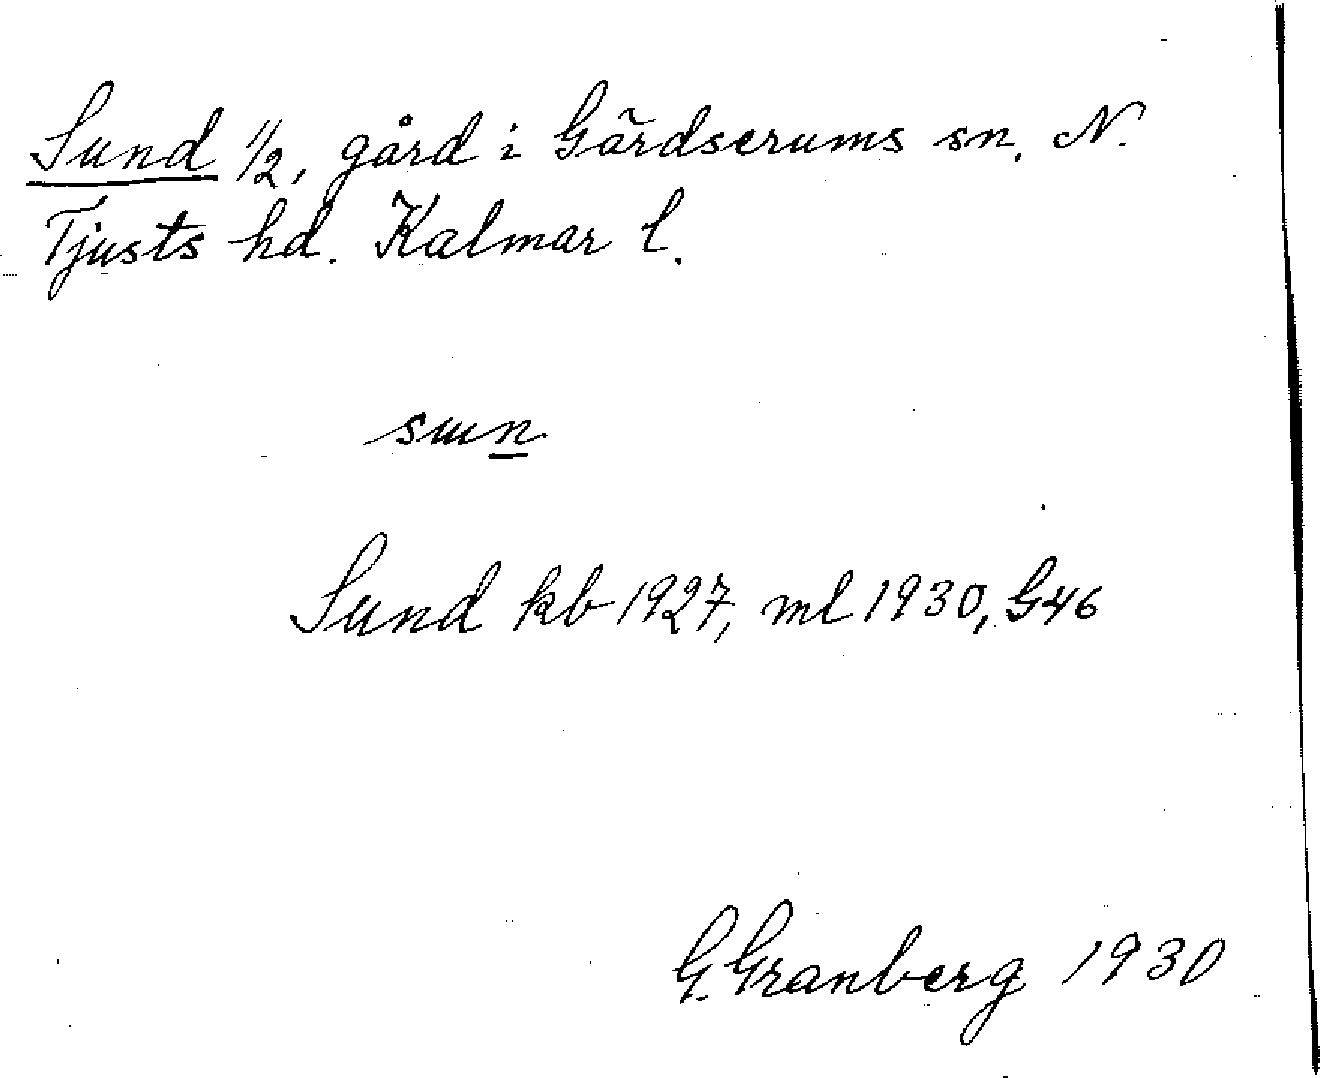 Sund 1/2, gård i Gärdserums sn. N.
Tjusts hd. Kalmar l.
sɯn
Sund kb 1927, ml 1930, G46
G. Granberg 1930